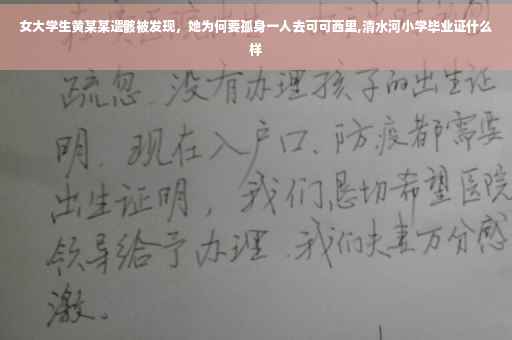 女大学生黄某某遗骸被发现，她为何要孤身一人去可可西里,清水河小学毕业证什么
样
疏忽、没有办理孩子的出生证
明、现在入户口、防疫都需要
出生证明，我们恳切希望医院
领导给予办理、我们夫妻万分感
激。